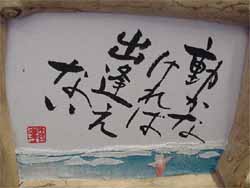 動かな
ければ
出逢え
ない